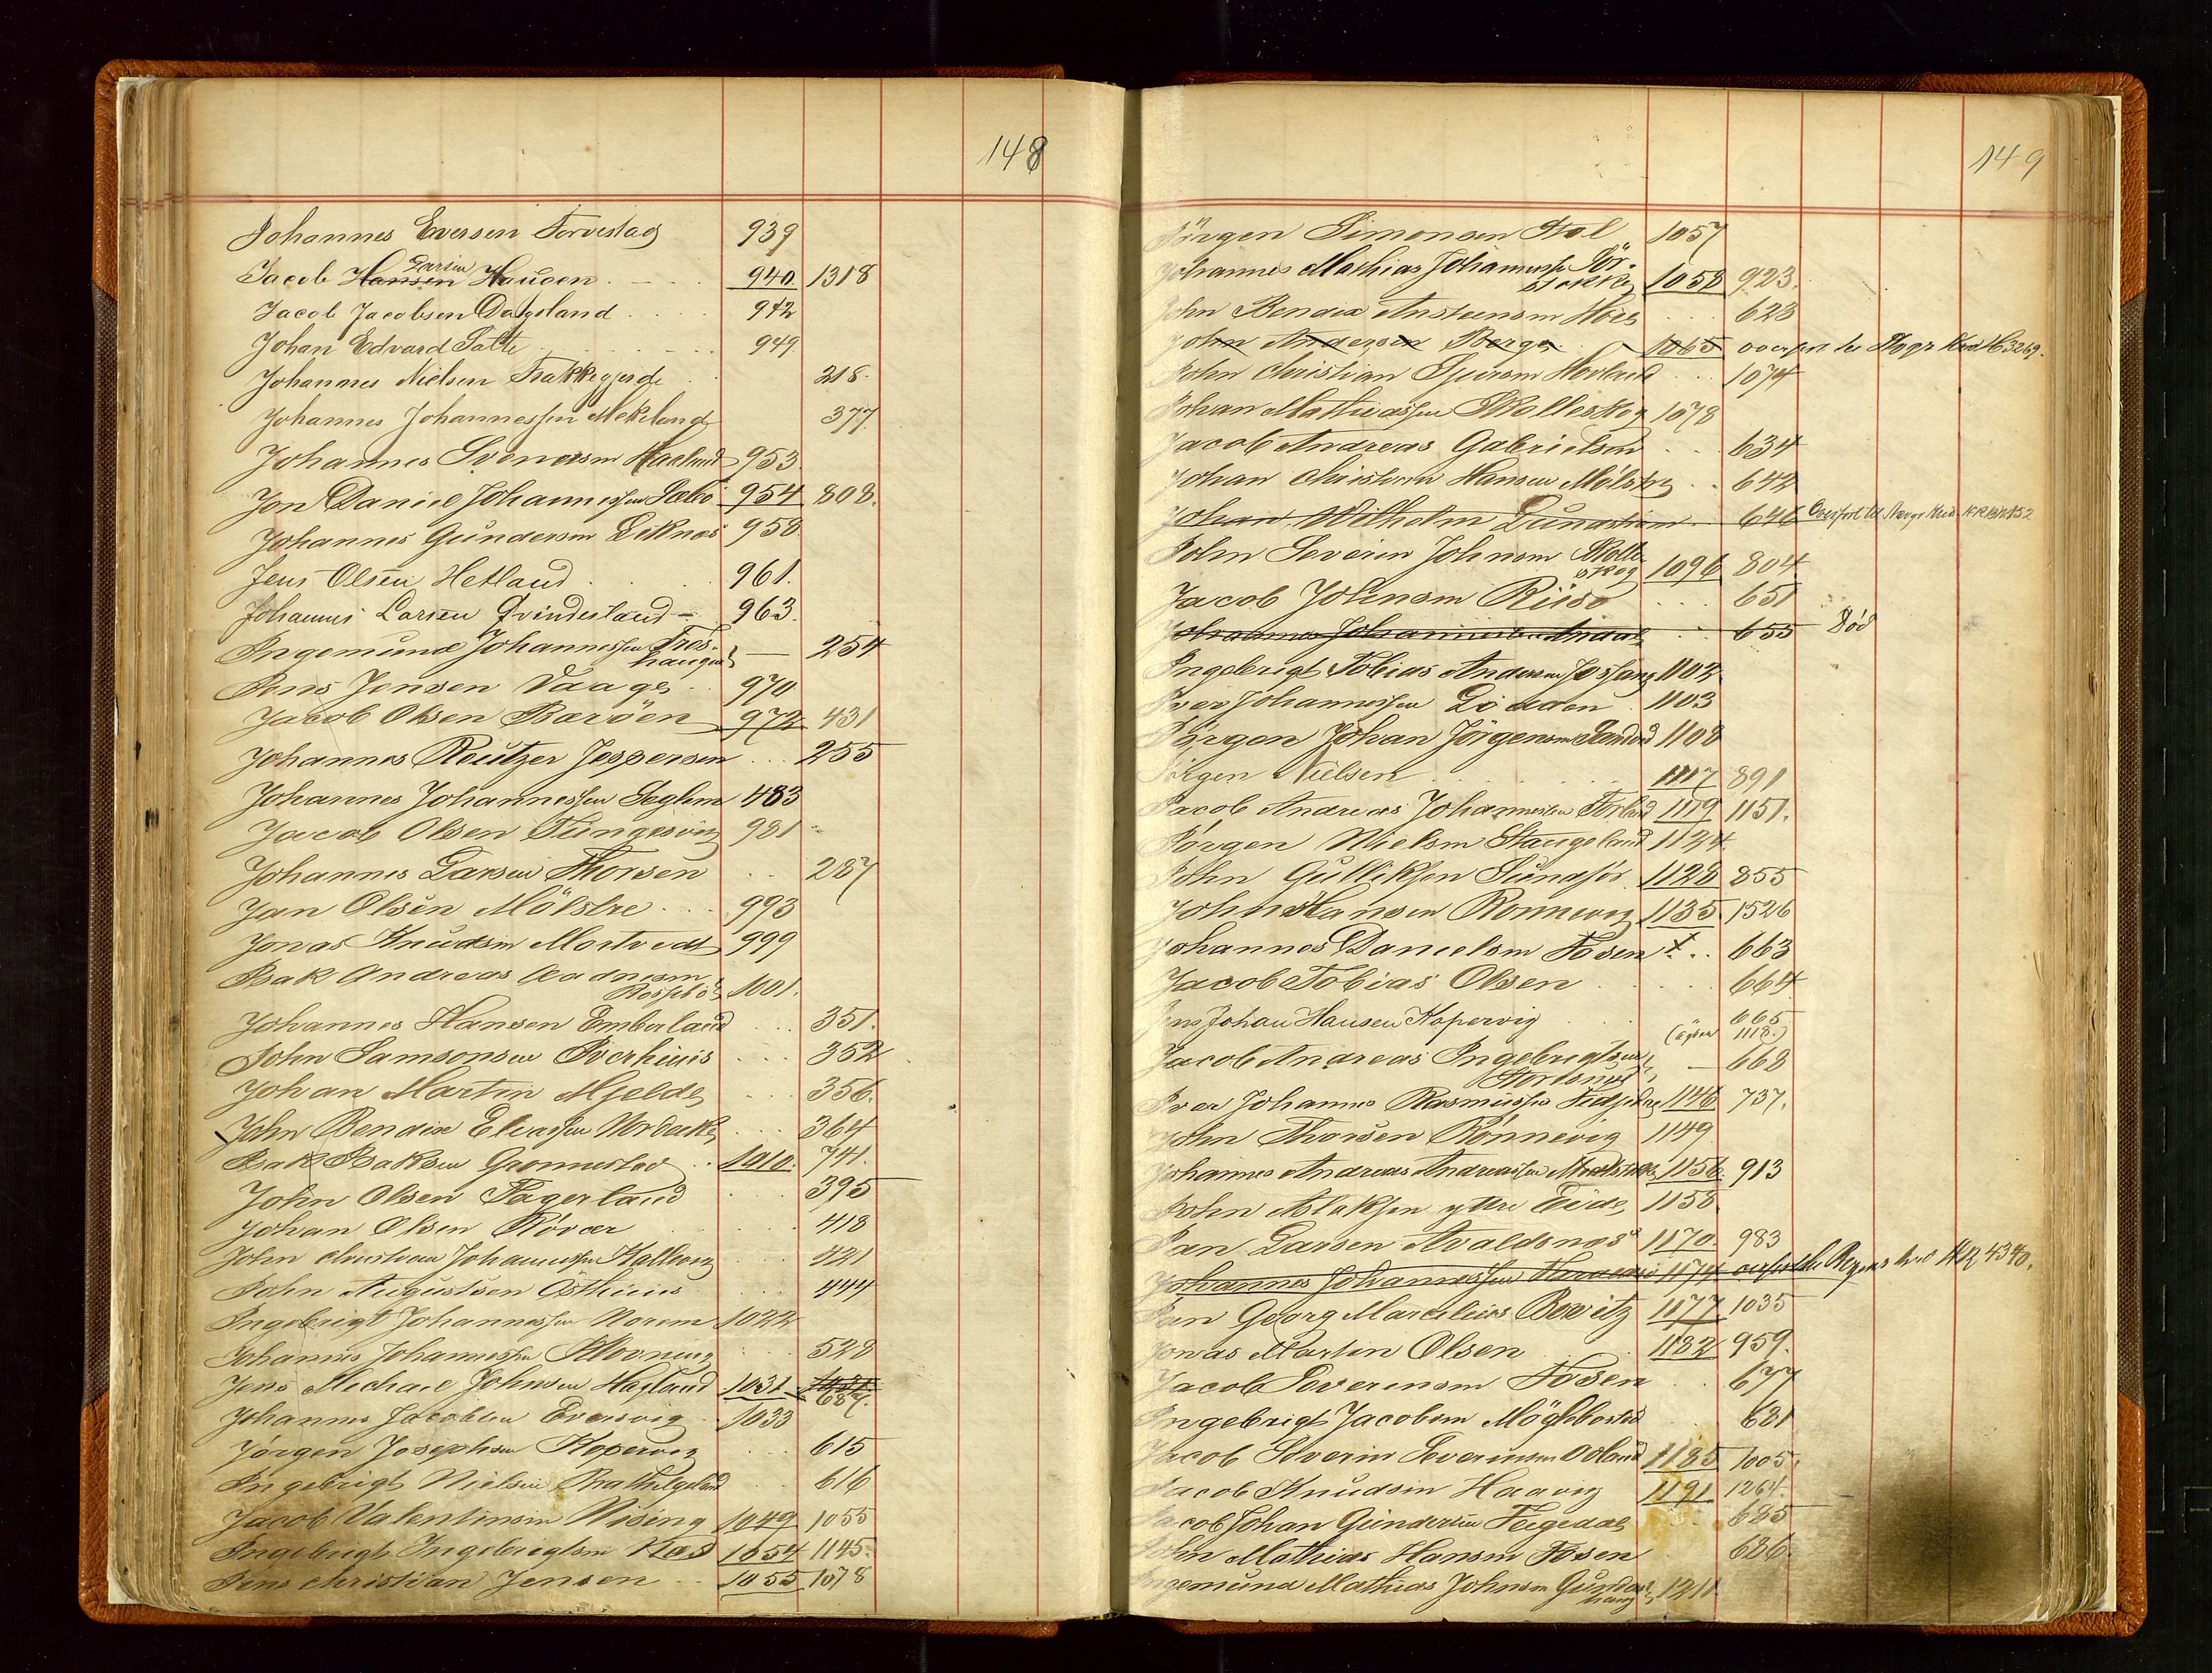 148
Johannes Eversen Torvestad 939
Jacob Hansen Larsen Haugen 940 1318
Jacob Jacobsen Dagsland 942
Johan Edvard Salte 949
Johannes Nielsen Frakkegjerde 218
Johannes Johannessen Mekland 377
Johannes Svensen Haaland 953
Jon Daniel Johannessen Sæbø 954 808
Johannes Gundersen Liknæs 958
Jens Olsen Hetland 961
Johannes Larsen Qvindesland 963
Ingemund Johannessen Tros-
haugen 254
Jens Jensen Vaage 970
Jacob Olsen Barøen 972 431
Johannes Reutzer Jespersen 255
Johannes Johannessen Seglem 483
Jacob Olsen Tungesvig 981
Johannes Larsen Thorsen 287
Jan Olsen Mølstre 993
Jonas Knudsen Mortvedt 999
Isak Andreas Aadnesen
Rossebø 1001
Johannes Hansen Emberland 351
John Samsonsen Sverhuus 352
Johan Martin Mjelde 356
John Bendix Eliassen Nordaker 364
Isak Isaksen Gronnestad 1010 741
John Olsen Fagerland 395
Johan Olsen Røvær 418
John Christian Johannessen Kallevig 421
John Augustsen Østhuus 444
Ingebrigt Johannessen Norem 1022
Johannes Johannessen Klovning 528
Jens Michael Johnsen Hagland 1031
687
Johannes Jacobsen Evensvig 1033
Jørgen Josephsen Kopervig 615
Ingebrigt Nielsen 616
Jacob Valentinsen Nising 1049 1055
Ingebrigt Ingebrigtsen Næs 1054 1145
Jens Christian Jensen 1055 1078
149
Jørgen Simonsen Stol 1057
Johannes Mathias Johannessen Før-
1058 923
John Bendix Anstensen Hoes 623
John Andersen Berge 1065 overført til Stavgr Kred H 3269
John Christian Sjursen Hovland 1074
Johan Mathiassen Skolleskog 1078
Jacob Andreas Gabrielsen 634
Johan Christian Hansen Mølstre 642
Johan Wilhelm 646 Overført til Stavgr Kred
John Severin Johnsen Skolle-
skog 1096 804
Jacob Johnsen Risø 651
Johannes Johannessen 655 Død
Ingebrigt Tobias Andersen Jossang 1102
Iver Johannessen Lodden 1103
Jørgen Johan Jørgensen Sandvid 1108
Jørgen Nielsen 1117 891
Jacob Andreas Johannessen Førland 1119 1151
Jørgen Nielsen Stangeland 1124
John Gulliksen Sundfør 1128 855
John Hansen Rønnevig 1135 1526
Johannes Danielsen Fosen X 663
Jacob Tobias Olsen 664
Jens Johan Hansen Kopervig 665
(ogsaa 1118)
Jacob Andreas Ingebrigtsen
Storesund 668
Iver Johannes Rasmussen Fedjedal 1146 737
John Thorsen Rønnevig 1149
Johannes Andreas Andreassen 1156 913
John Aslaksen ytre Eide 1158
Jan Larsen Avaldsnæs 1170 983
Johannes Johannessen 1174 overført til Bergens Kred 4340
Jan Georg Marcelius Bowitz 1177 1035
Jonas Martin Olsen 1182 959
Jacob Severinsen Fosen 677
Ingebrigt Jacobsen Møglebosted 681
Jacob Severin Severinsen Odland 1185 1005
Jacob Knudsen Haavig 1191 1264
Jacob Johan Gundersen Feigedal 685
John Mathias Hansen Fosen 686
Ingemund Mathias Johnsen Gunders-
haug 1211